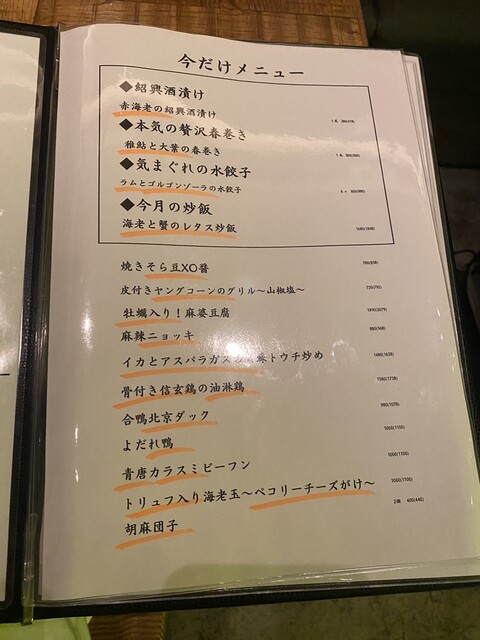 今だけメニュー
◆紹興酒漬け
赤海老の紹興酒漬け
◆本気の贅沢春巻き
稚鮎と大葉の春巻き
◆気まぐれの水餃子
ラムとゴルゴンゾーラの水餃子
◆今月の炒飯
海老と蟹のレタス炒飯 1680(1848)
焼きそら豆XO醬 780(858)
皮付きヤングコーンのグリル〜山椒塩〜 720(792)
牡蠣入り!麻婆豆腐 1890(2079)
麻辣ニョッキ 880(968)
イカとアスパラガスの トウチ炒め 1480(1628)
骨付き信玄鶏の油淋鶏 1580(1738)
合鴨北京ダック 980(1078)
よだれ鴨 1000(1100)
青唐カラスミビーフン 1000(1100)
トリュフ入り海老玉〜ペコリーチーズがけ〜 1000(1100)
胡麻団子 2個 400(440)